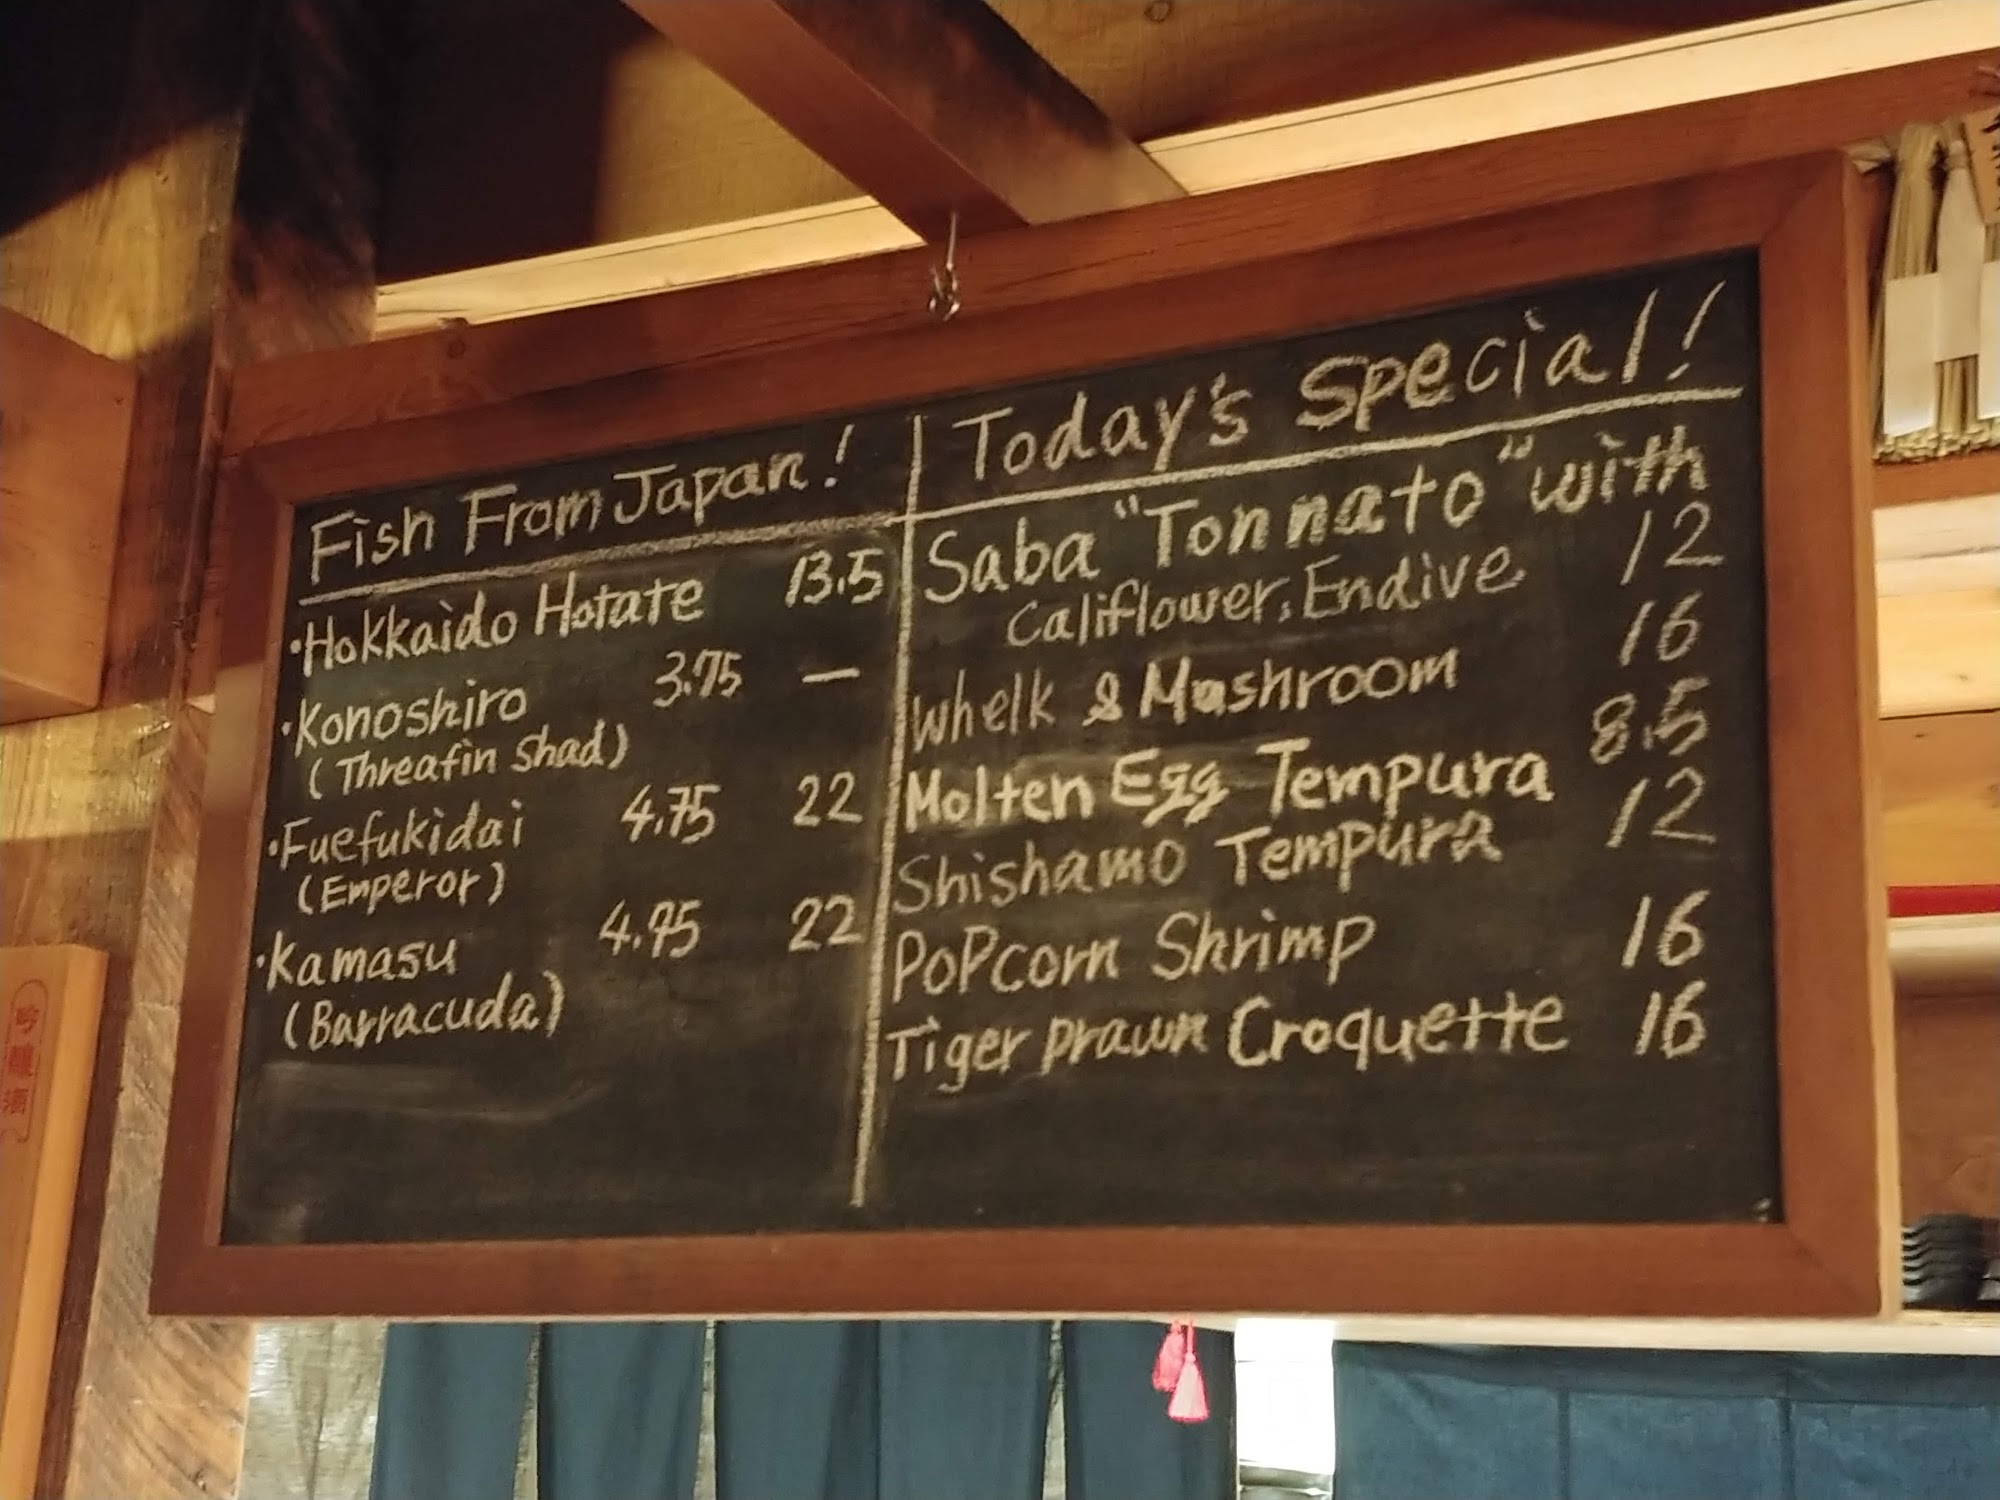 Fish From Japan!
·Hokkaido Hotate 13.5
·Konoshiro 3.75 —
(Threafin Shad)
·Fuefukidai 4.75 22
(Emperor)
·Kamasu 4.75 22
(Barracuda)
Today's Special!
Saba "Tonnato" with
Califlower, Endive 12
Whelk & Mushroom 16
Molten Egg Tempura 8.5
Shishamo Tempura 12
PoPcorn Shrimp 16
Tiger prawn Croquette 16
吟醸酒